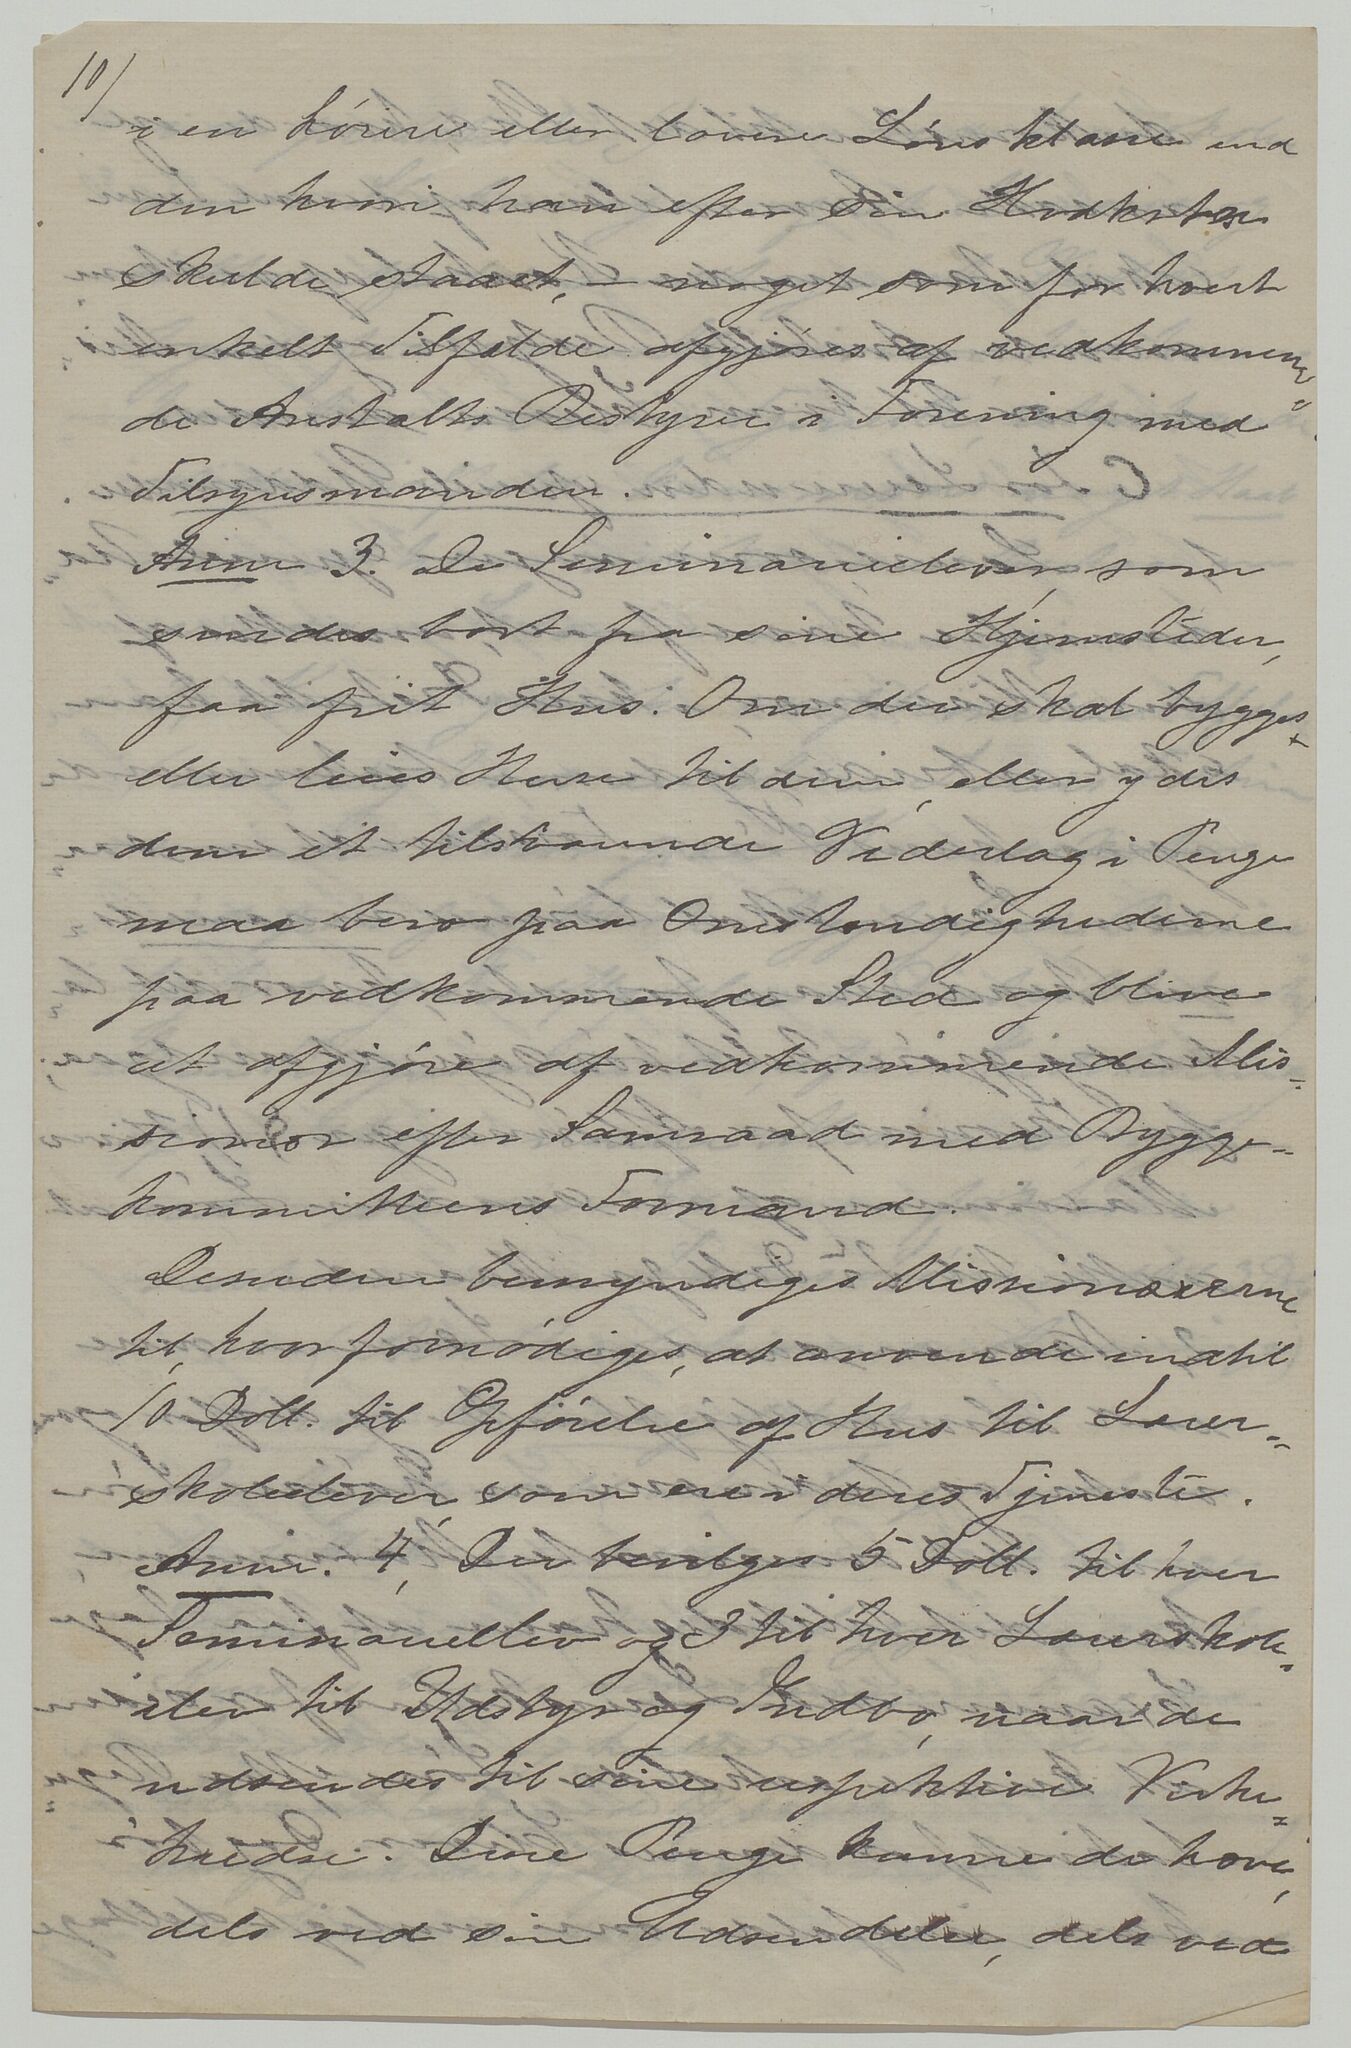 10/
i en høiere eller lavere Lønsklasse end
den hvori han efter sin Karakter
skulde staaet, – noget som for hvert
enkelt Tilfælde afgjøres af vedkommen-
de Anstalts Bestyrer i Forening med
Tilsynsmanden.
Anm 3. De Seminarielever, som
sendes bort fra sine Hjemsteder,
faa frit Hus. Om der skal bygges
eller leies Huse til dem, eller ydes
dem et tilsvarende Vederlag i Penge
maa bero paa Omstændighederne
paa vedkommende Sted og blive
at afgjøre af vedkommende Mis-
sionær efter Samraad med Bygge-
kommitteens Formand.
Desuden bemyndiges Missionærerne
til, hvor fornødiges, at anvende indtil
10 Doll. til Opførelse af Hus til Lærer-
skoleelever, som ere i deres Tjeneste.
Anm. 4, Der bevilges 5 Doll. til hver
Seminarielev og 3 til hver Lærerskole-
elev til Udstyr og Indbo, naar de
udsendes til sine respektive Virke-
kredse. Disse Penge kunne de hæve,
dels ved sin Udsendelse, dels ved